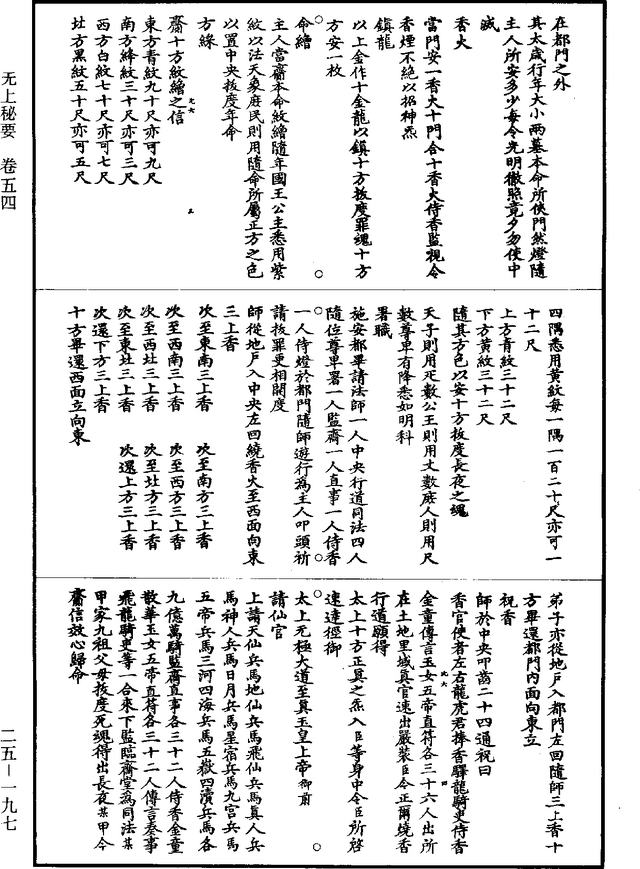 在都門之外
其太歲行年大小兩墓本命所俠門然燈隨
主人所安多少每令光明徹照竟夕勿使中
滅
香火
當門安一香火十門合十香火侍香監視令
香煙不絕以招神炁
鎮龍
以上金作十金龍以鎮十方拔度罪魂十方
方安一枚
命繒
主人當齋本命紋繒隨年國王公主悉用紫
紋以法天象庶民則用隨命所屬正方之色
以置中央拔度年命
方綵
齋十方紋繒之信
東方青紋九十尺亦可九尺
南方絳紋三十尺亦可三尺
西方白紋七十尺亦可七尺
北方黑紋五十尺亦可五尺
四隅悉用黃紋每一隅一百二十尺亦可一
十二尺
上方青紋三十二尺
下方黃紋三十二尺
隨其方色以安十方拔度長夜之魂
天子則用疋數公王則用丈數庶人則用尺
數尊卑有降悉如明科
署職
施安都畢請法師一人中央行道同法四人
隨位尊卑署一人監齋一人直事一人侍香
一人侍燈於都門隨師遊行為主人叩頭祈
請拔罪更相開度
師從地戶入中央左回繞香火至西面向東
三上香
次至東南三上香 次至南方三上香
次至西南三上香 次至西方三上香
次至西北三上香 次至北方三上香
次至東北三上香 次還上方三上香
次還下方三上香
十方畢還西面立向東
弟子亦從地戶入都門左回隨師三上香十
方畢還都門內面向東立
祝香
師於中央叩齒二十四通祝曰
香官使者左右龍虎君捧香驛龍騎吏侍香
金童傳言玉女五帝直符各三十六人出所
在土地里域真官速出嚴裝臣今正爾燒香
行道願得
太上十方正真之炁入臣等身中令臣所啓
速達徑御
太上无極大道至真玉皇上帝御前
請仙官
上請天仙兵馬地仙兵馬飛仙兵馬真人兵
馬神人兵馬日月兵馬星宿兵馬九宮兵馬
五帝兵馬三河四海兵馬五嶽四瀆兵馬各
九億萬騎監齋直事各三十二人侍香金童
散華玉女五帝直符各三十二人傳言奏事
飛龍騎吏等一合來下監臨齋堂為同法某
甲家九祖父母拔度死魂得出長夜某甲今
齎信效心歸命
无上秘要 卷五四
二五－一九七